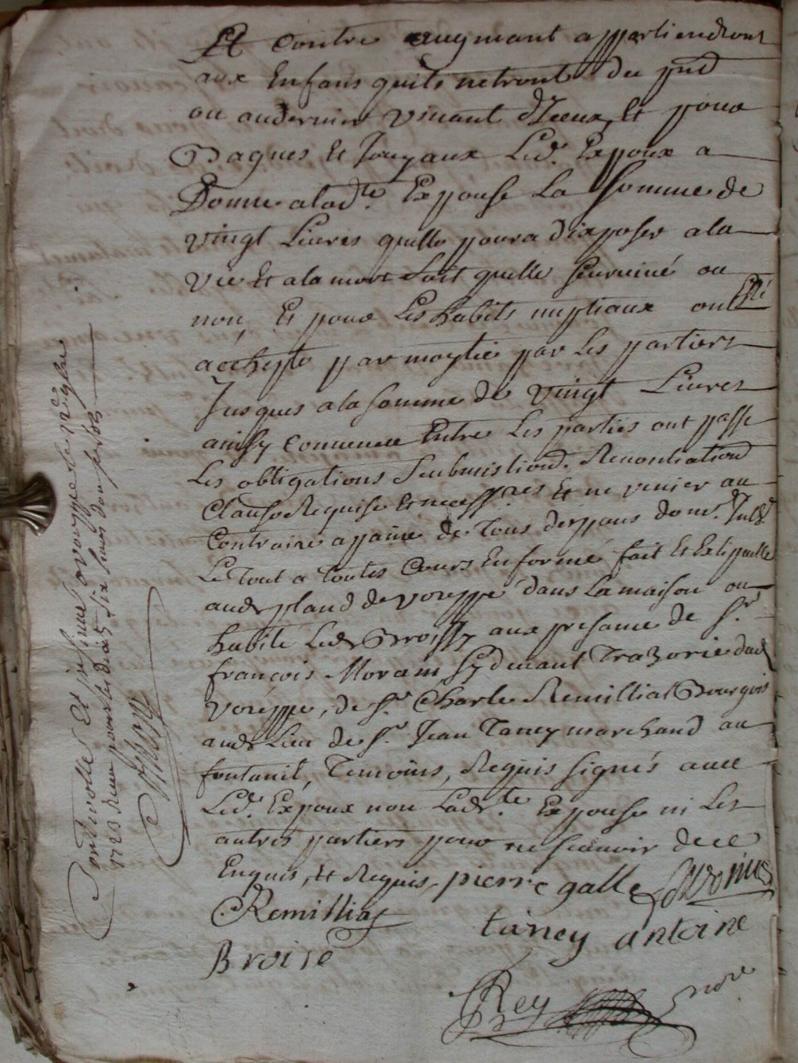 Et Contre augmant appartiendront
aux Enfans quils netront du pnt
ou audernier vivant d'Iceux, Et pour
Bagues Et Jouyaux Led. Expoux a
Donne alad.te Expouse La Somme de
vingt Livres quelle poura dixposer ala
vie Et ala mort soit quelle Surviué ou
non, Et pour Les habits nuptiaux ont Esté
achepte par moytie par Les partiers
Jusques ala Somme de vingt Livres
ainsy Convenu Entre Les parties ont passe
Les obligations Submissiond. Renontiationd
Clause Requise Et necess.res Et ne venier au
Contraire a paine de Tous despans dom.
Le Tout a toutes Cours En forme fait Et
aud. pland de voreppe dans La maison ou
habite Led. Broise aux presance de S.r
françois Morain Sy devant Trazorie dud
Voreppe, de S.r Charle Remilliat Bourgois
aud. Lieu de S.r Jean Tancy marchand au
fontanil, Temoins, Requis Signés avec
Led. Expoux non Lad.te Expouse ni Les
autres partiers pour ne Scavoir de ce
Enquis, Et Requis, pierre galle
Remilliat tancy antoine
Broise
Rey no.re
Controllé Et à voreppe Le 12e 9bre
1723 Receu